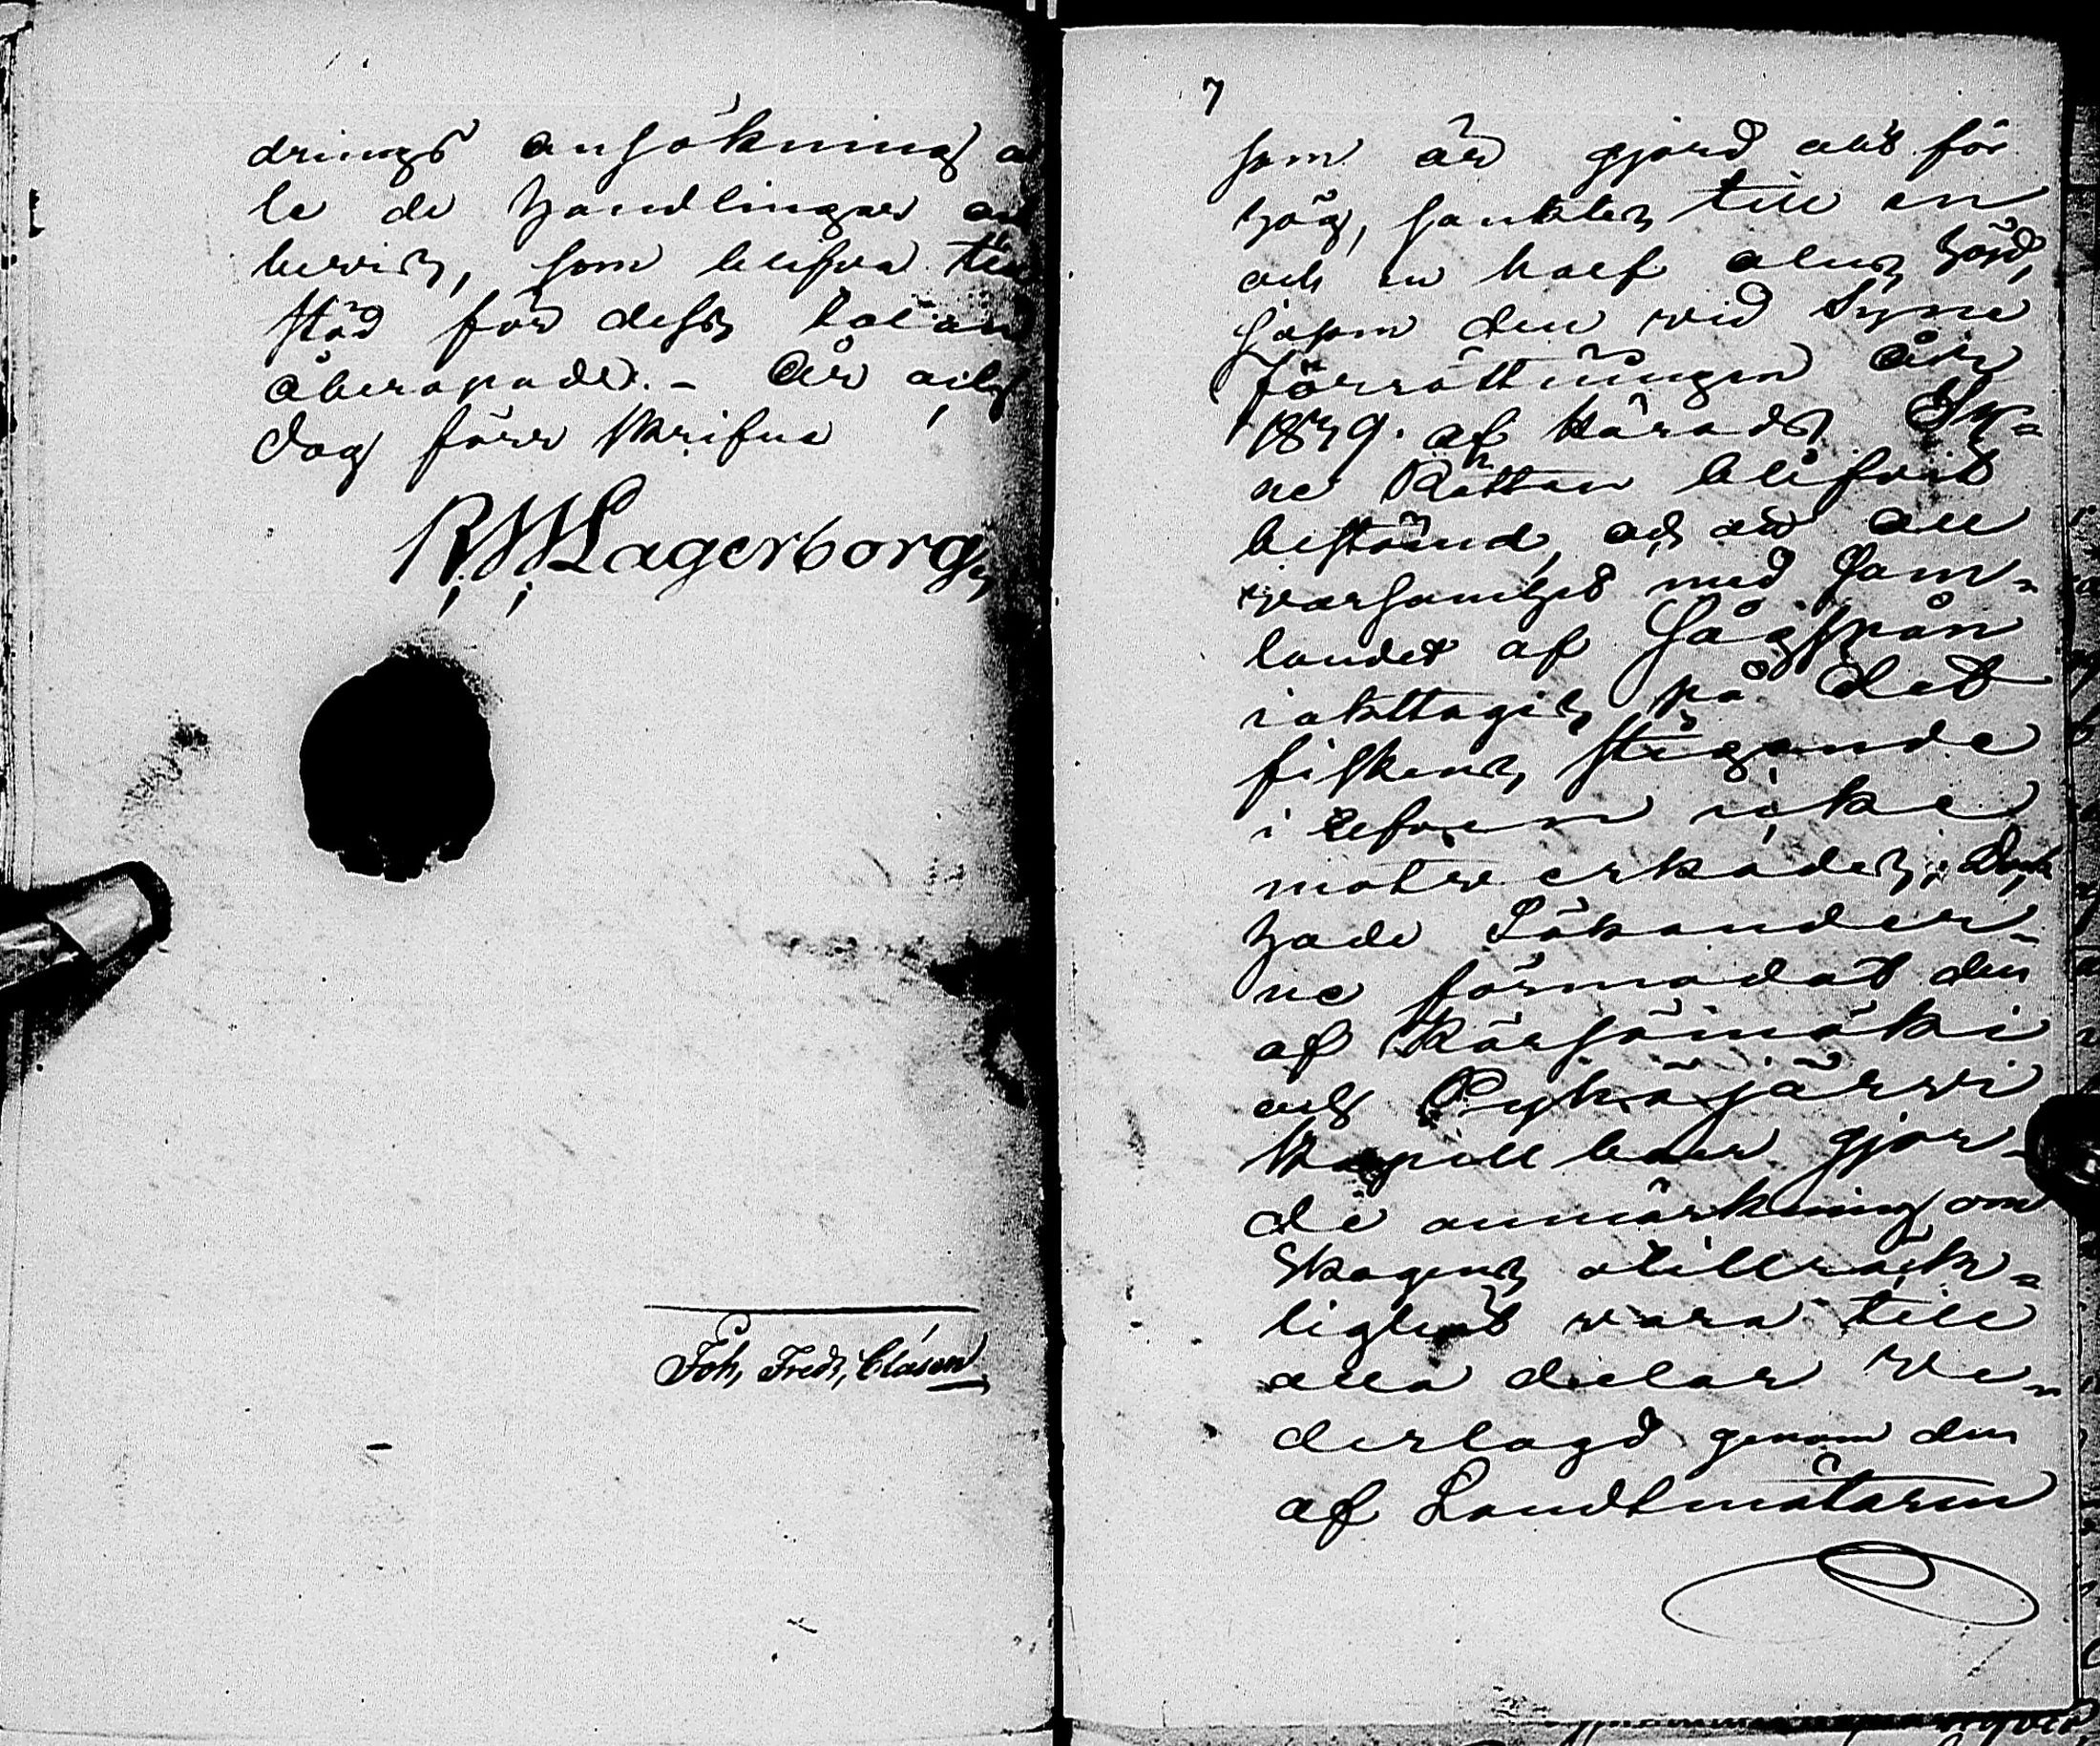 drings ansökning al
le de handlingar och
bevis, som blifva till
stöd för dess talan
åberopade. - År och
dag förr skrifne
R. W. Lagerborg
Joh, Fredr, Clásen
7
som är gjord alt för
hög, sänktes till en
och en half alns höjd,
såsom den vid Syne
förrättningen år
1839. af Härads Sy=
ne Rätten blifvit
bestämd, och att all
varsamhet med Sam=
landet af Sågspån
iakttages på det
fiskens stigande
i elfven icke
motverkades; Dock
hade Sökander=
ne förmodat den
af Kärsämäki
och Pyhäjärvi
Kapell boer gjor=
de anmärkning om
Skogens otillräck=
lighet vara till
alla delar ve=
derlagd genom den
af Landtmätaren